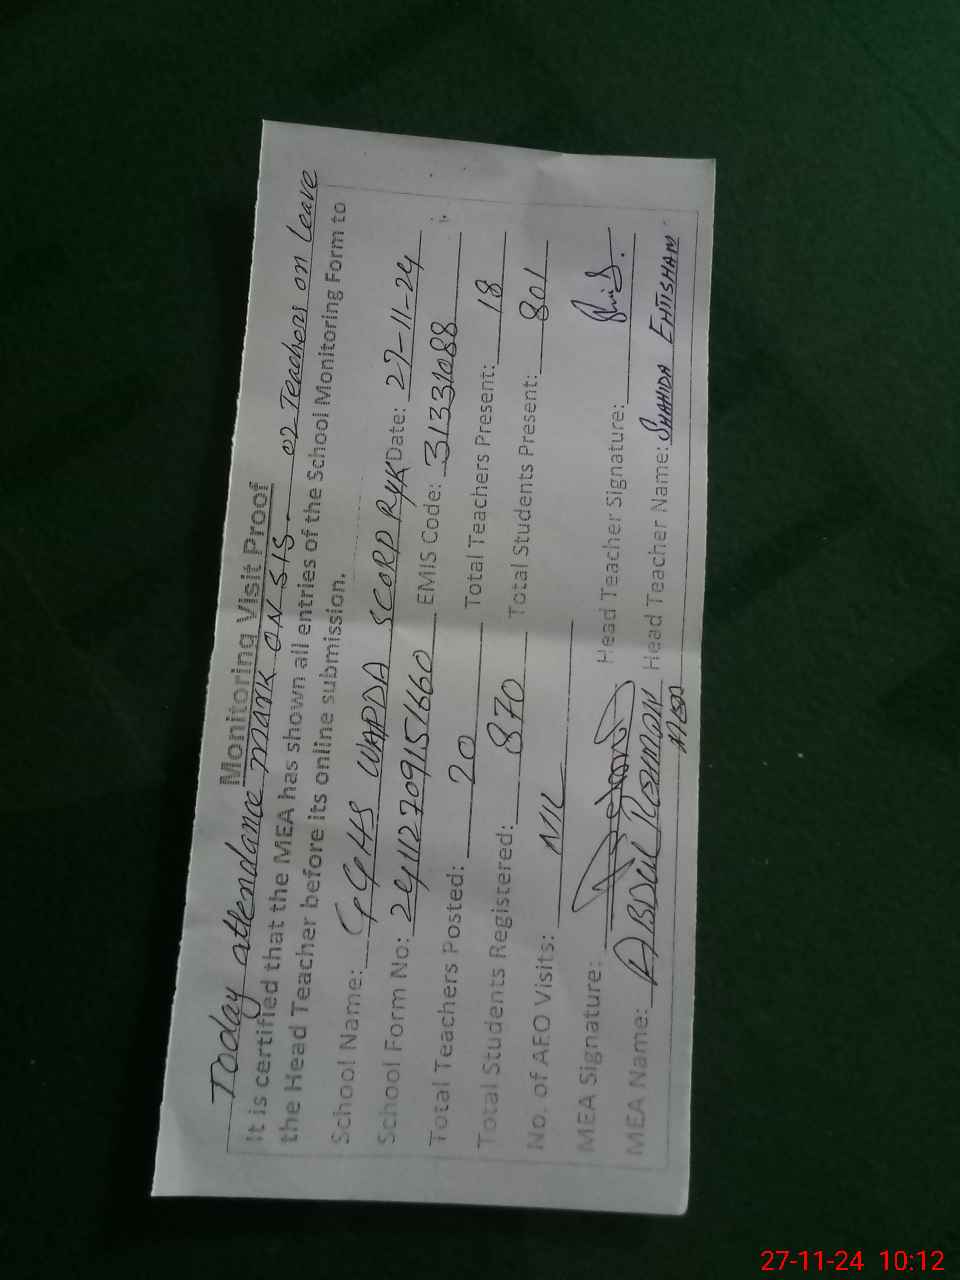 Monitoring Visit Proof
Today attendance mark on SIS. 02 Teachers on Leave
It is certified that the MEA has shown all entries of the School Monitoring Form to
the Head Teacher before its online submission.
School Name: GGHS WAPDA SCORP RYK Date: 27-11-24
School Form No: EMIS Code: 31331088
Total Teachers Posted: 20 Total Teachers Present: 18
Total Students Registered: 870 Total Students Present: 801
No. of AEO Visits: NIL
MEA Signature: Head Teacher Signature:
MEA Name: ABDUL REHMAN Head Teacher Name: SHAHIDA EHTISHAM
27-11-24 10:12